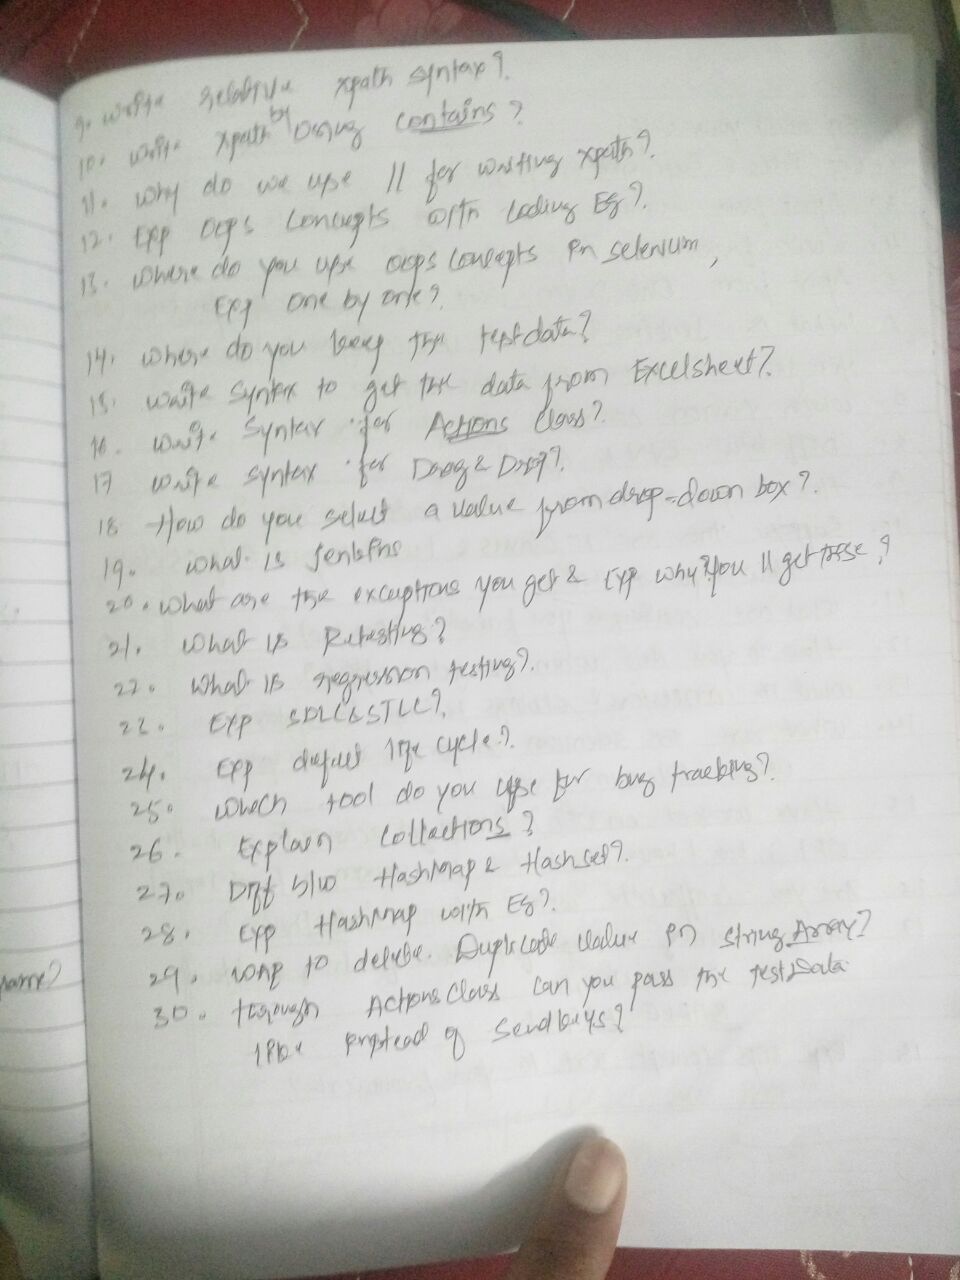 9. write relative xpath syntax?
10. write xpath by using contains?
11. why do we use // for writing xpath?
12. Exp oops concepts with coding Eg?
13. where do you use oops concepts in selenium,
Exp one by one?
14. where do you keep the test data?
15. write syntax to get the data from Excelsheet?
16. write syntax for Actions class?
17 write syntax for Drag & Drop?
18 How do you select a value from drop-down box?
19. what is Jenkins
20. what are the exceptions you get & Exp why? you'll get these?
21. what is Retesting?
22. what is regression testing?
23. Exp SDLC & STLC?
24. Exp defect life cycle?
25. which tool do you use for bug tracking?
26. Explain collections?
27. Diff b/w HashMap & Hash set?
28. Exp HashMap with Eg?
29. WAP to delete Duplicate value in string Array?
30. through Actions Class can you pass the test Data
like instead of Sendkeys?
name?